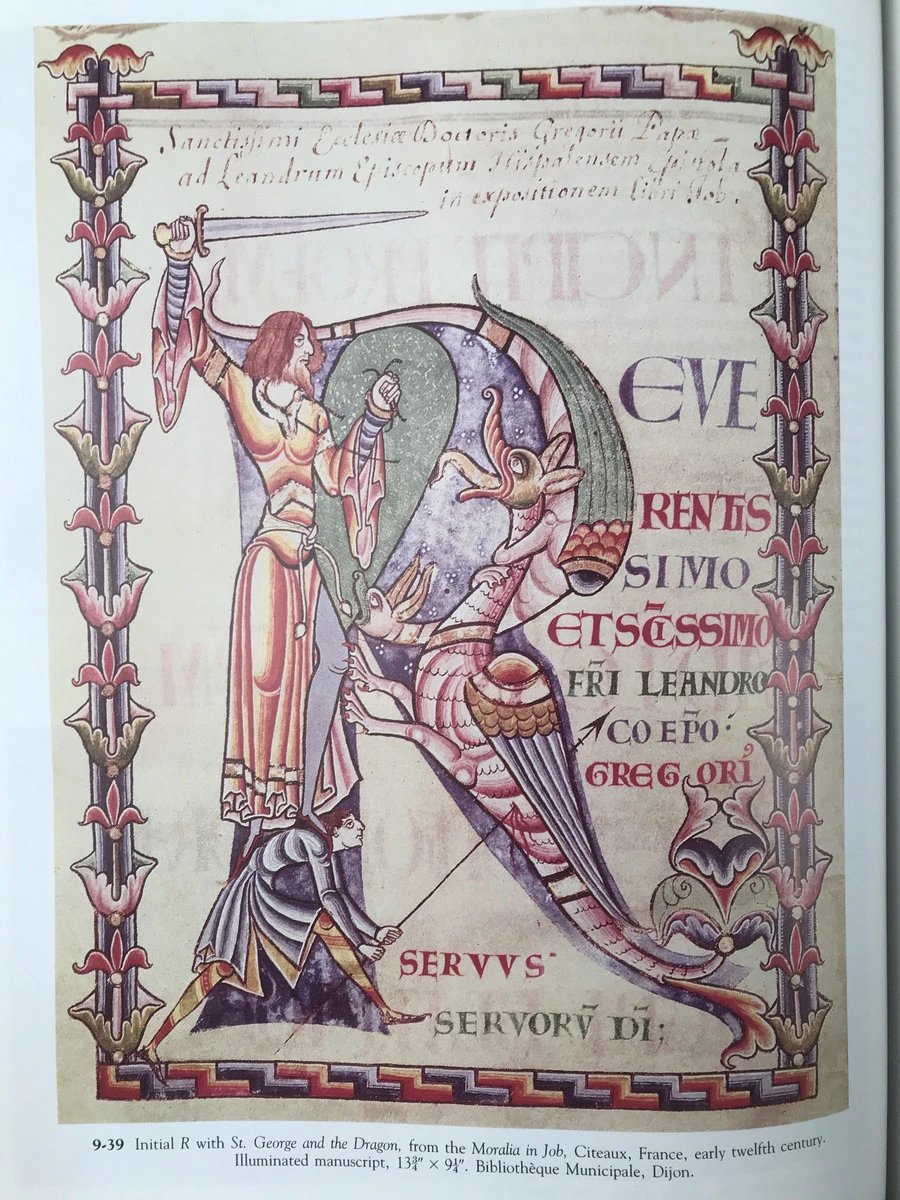 Sanctissimi Ecclesiæ Doctoris Gregorii Papæ
ad Leandrum Episcopum Hispalensem Epistola
in expositionem libri Job.
R EVE
RENTIS
SIMO
ET SC̄ISSIMO
FR̄I LEANDRO
COEPŌ:
GREGORI'
SERVVS
SERVORV̄ DĪ;
9-39 Initial R with St. George and the Dragon, from the Moralia in Job, Citeaux, France, early twelfth century.
Illuminated manuscript, 13¾" × 9¼". Bibliothèque Municipale, Dijon.